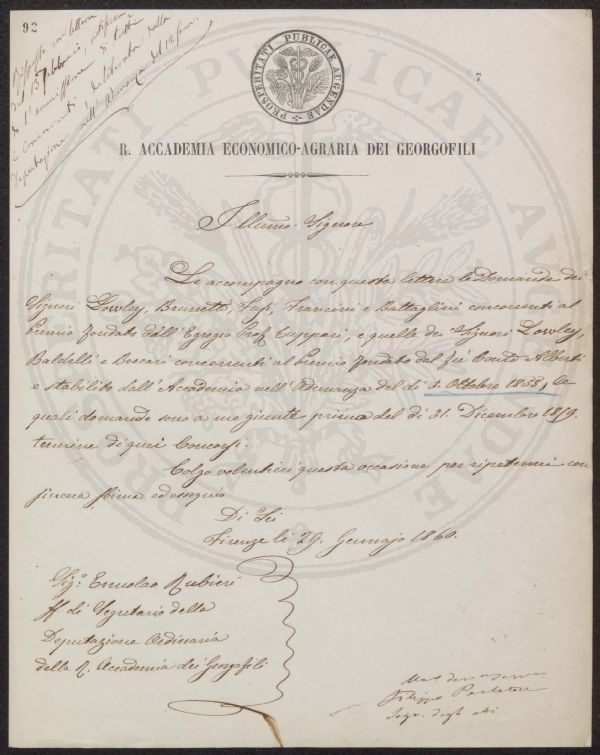 92
7
Risposto con lettera
del 15 Febbraio,
di tutti
i concorrenti deliberata dalla
Deputazione nell'Adunanza del
PROSPERITATI PUBLICAE AUGENDAE
R. ACCADEMIA ECONOMICO-AGRARIA DEI GEORGOFILI
Illmo. Signore
Le accompagno con questa lettera le Domande dei
Signori Lowley, Brunetti, Francini e Battaglini concorrenti al
Premio fondato dall'Egregio Prof. Cuppari, e quelle dei Signori Lowley,
Baldelli e Beccari concorrenti al Premio fondato dal fù Conte Alberti
e stabilito dall'Accademia nell'Adunanza del dì Ottobre 1858, le
quali domande sono a me giunte prima del dì 31. Dicembre 1859.
termine di quei Concorsi.
Colgo volentieri questa occasione per ripetermi con
sincera stima ed ossequio
Di Lei
Firenze li 29. Gennajo 1860.
Sig.r Ermolao Rubieri
ff. di Segretario della
Deputazione Ordinaria
della R. Accademia dei Georgofili
Filippo Parlatore
Segr. degli atti.